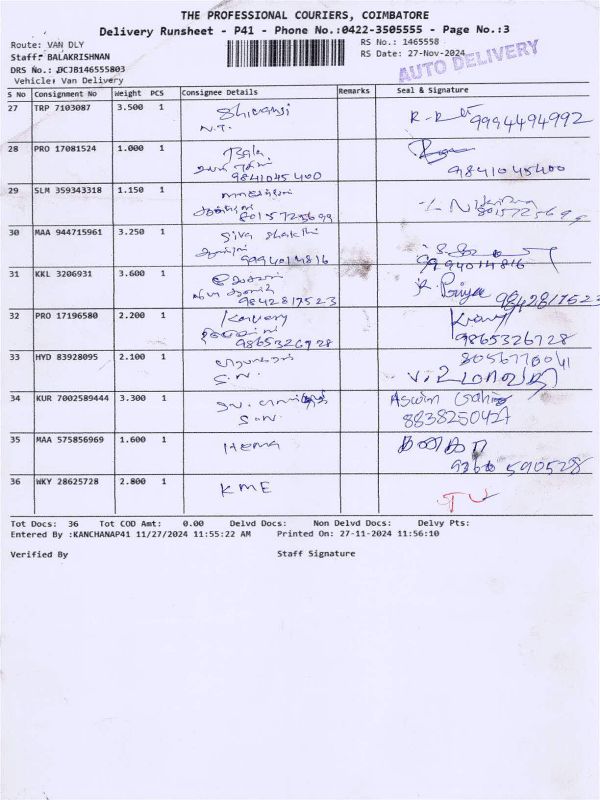 THE PROFESSIONAL COURIERS, COIMBATORE
Delivery Runsheet - P41 - Phone No.:0422-3505555 - Page No.:3
Route: VAN DLY
RS No.: 1465558
Staff: BALAKRISHNAN
RS Date: 27-Nov-2024
AUTO DELIVERY
DRS No.: DCJB146555803
Vehicle: Van Delivery
S No Consignment No Weight PCS Consignee Details Remarks Seal & Signature
27 TRP 7103087 3.500 1 Shivansi
N.T. 9994494992
28 PRO 17081524 1.000 1 Bala
9841045400 9841045400
29 SLM 359343318 1.150 1
8015725699 8015725699
30 MAA 944715961 3.250 1 Siva Shakthi
9994014816 9994014816
31 KKL 3206931 3.600 1
9842817523 R. Priya 9842817523
32 PRO 17196580 2.200 1
9865326728 9865326728
33 HYD 83928095 2.100 1 8056770041
S.N.
34 KUR 7002589444 3.300 1 Aswin
S.N. 8838250427
35 MAA 575856969 1.600 1 HEMA
590528
36 WKY 28625728 2.800 1 KME
Tot Docs: 36 Tot COD Amt: 0.00 Delvd Docs: Non Delvd Docs: Delvy Pts:
Entered By :KANCHANAP41 11/27/2024 11:55:22 AM Printed On: 27-11-2024 11:56:10
Verified By Staff Signature